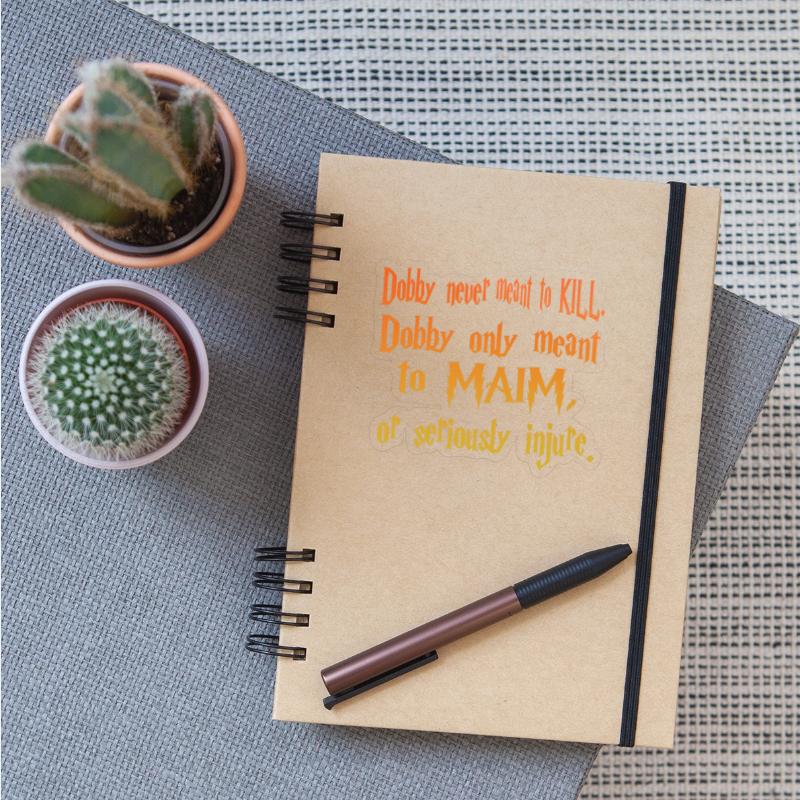 Dobby never meant to KILL.
Dobby only meant
to MAIM,
or seriously injure.